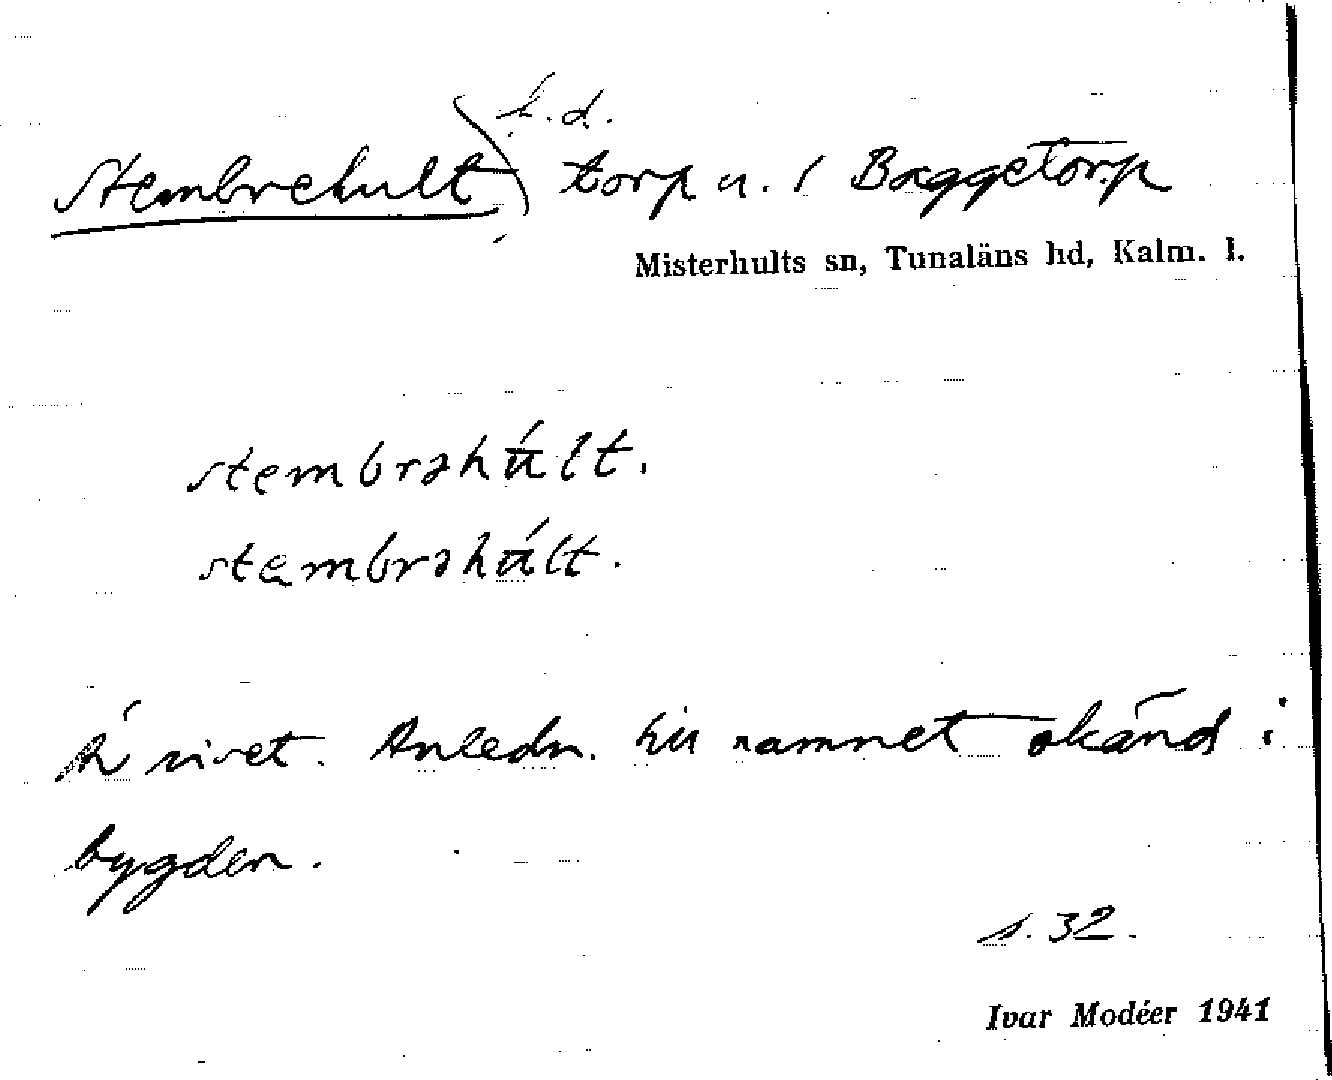 f.d.
Stembrehult torp u. / Baggetorp
Misterhults sn, Tunaläns hd, Kalm. l.
stembrəhúlt.
stembrəhúlt.
Är rivet. Anledn. till namnet okänd i
bygden.
s. 32.
Ivar Modéer 1941